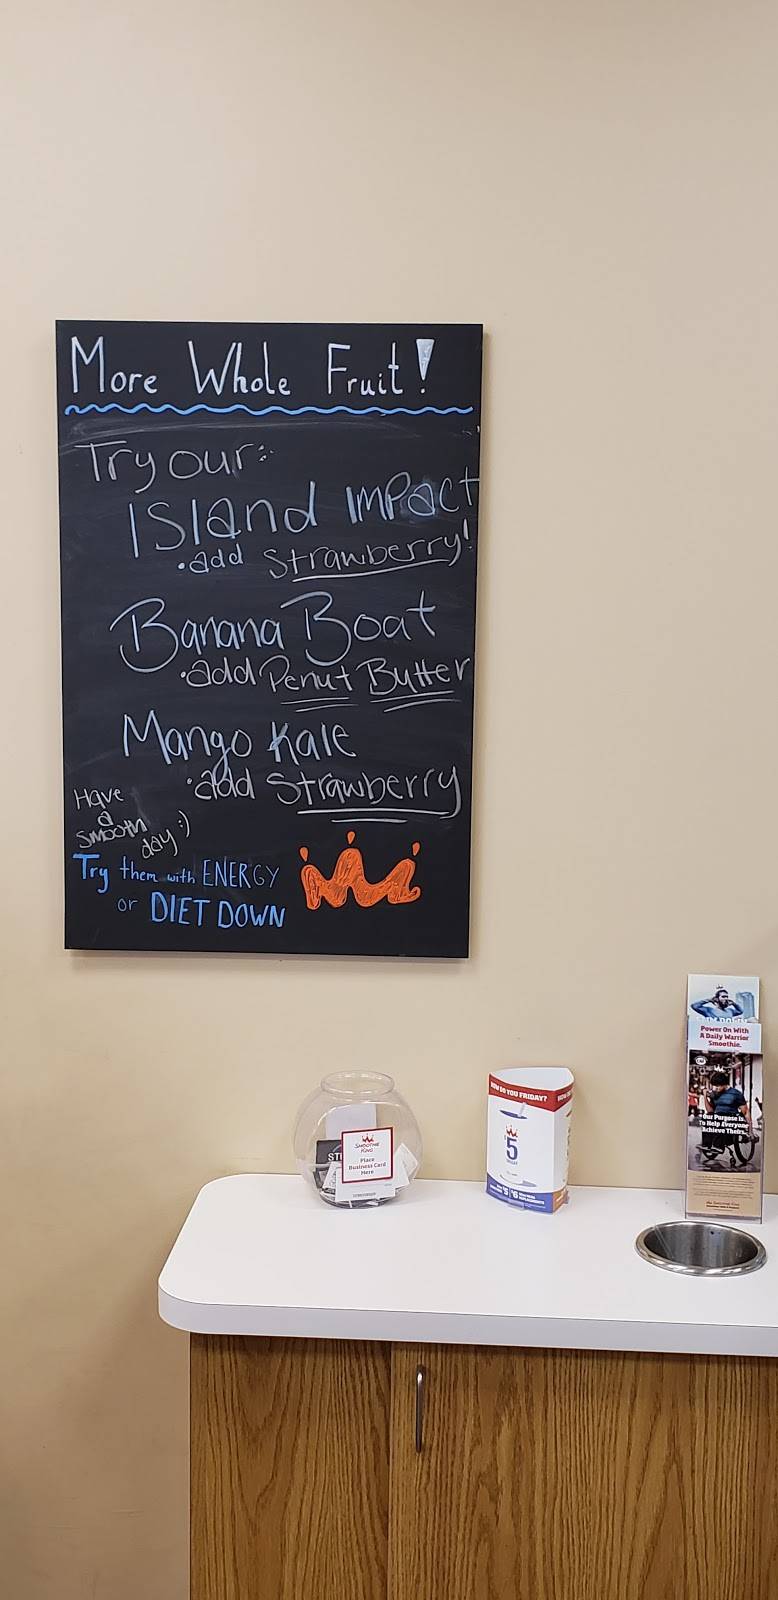 More Whole Fruit!
Try our:
Island Impact
•add Strawberry!
Banana Boat
•add Penut Butter
Mango Kale
•add Strawberry
Have
a
smooth
day :)
Try them with ENERGY
or DIET DOWN
SMOOTHIE
KING
Place
Business Card
Here
HOW DO YOU FRIDAY?
$5
Power On With
A Daily Warrior
Smoothie.
Our Purpose is
To Help Everyone
Achieve Theirs.